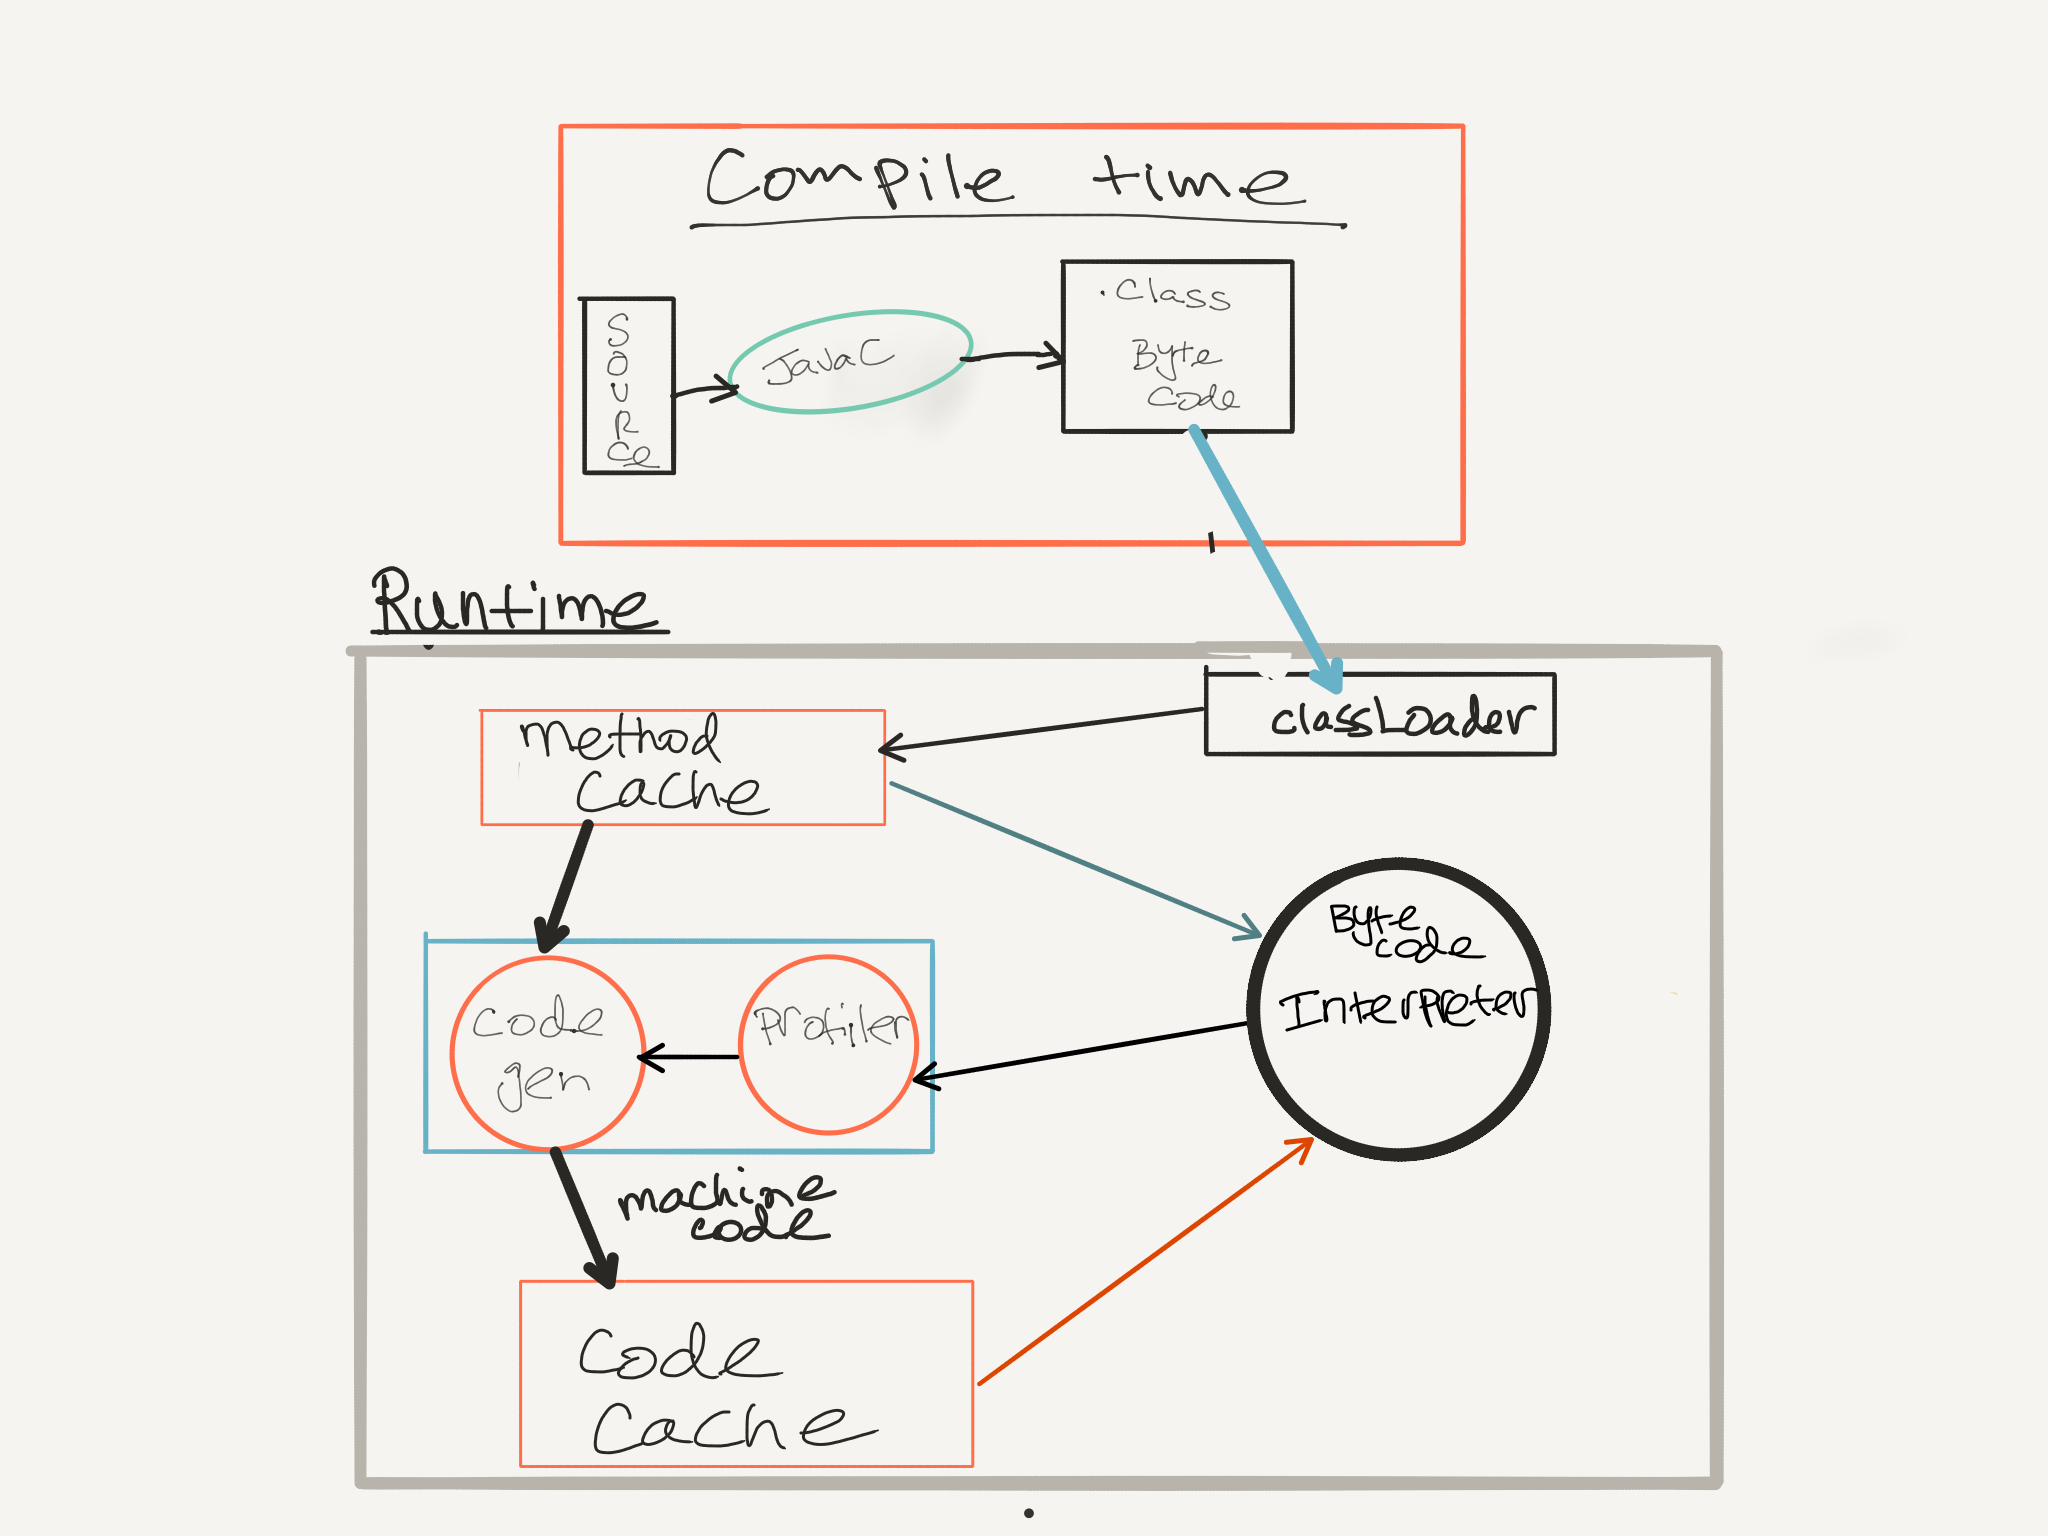 Compile time
Source
JavaC
.Class
Byte
Code
Runtime
classLoader
Method
Cache
Byte
code
Interpreter
Code
gen
Profiler
machine
code
Code
Cache